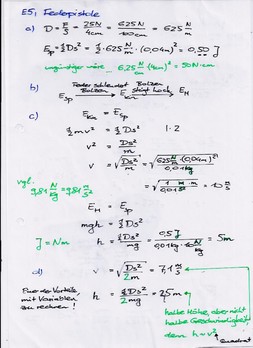 E5, Federpistole
a) D = F/s = 25N/4cm = 625N/100cm = 625 N/m
E_Sp = ½Ds² = ½·625 N/m·(0,04m)² = 0,50 J
ungünstiger wäre 6,25 N/cm (4cm)² = 50 N·cm
b) E_Sp → Feder schleudert Bolzen → E_Kin → Bolzen steigt hoch → E_H
c) E_Kin = E_Sp
½mv² = ½Ds² | · 2
v² = Ds²/m
v = √(Ds²/m) = √(625 N/m·(0,04m)²/0,01kg)
vgl. 9,81 N/kg = 9,81 m/s²
= 10 m/s
E_H = E_Sp
mgh = ½Ds²
J = Nm
h = ½Ds²/mg = 0,5J/0,01kg·10 N/kg = 5m
d) v = √(Ds²/2m) = 7,1 m/s
Einer der Vorteile, mit Variablen zu rechnen!
h = ½Ds²/2mg = 2,5m
halbe Höhe, aber nicht
halbe Geschwindigkeit,
denn h ~ v²
Quadrat